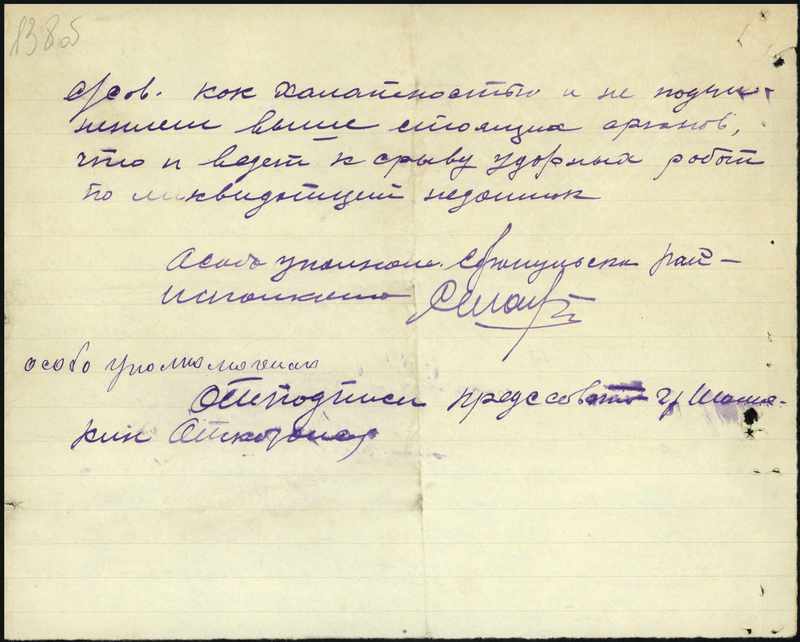 138об
с/сов. как халатностью и не подчи-
нением выше стоящих органов,
что и ведет к срыву ударных работ
по ликвидации недоимок
Особо уполном. рай-
исполкома
особо уполномоченой
От подписи предссовета
отказался